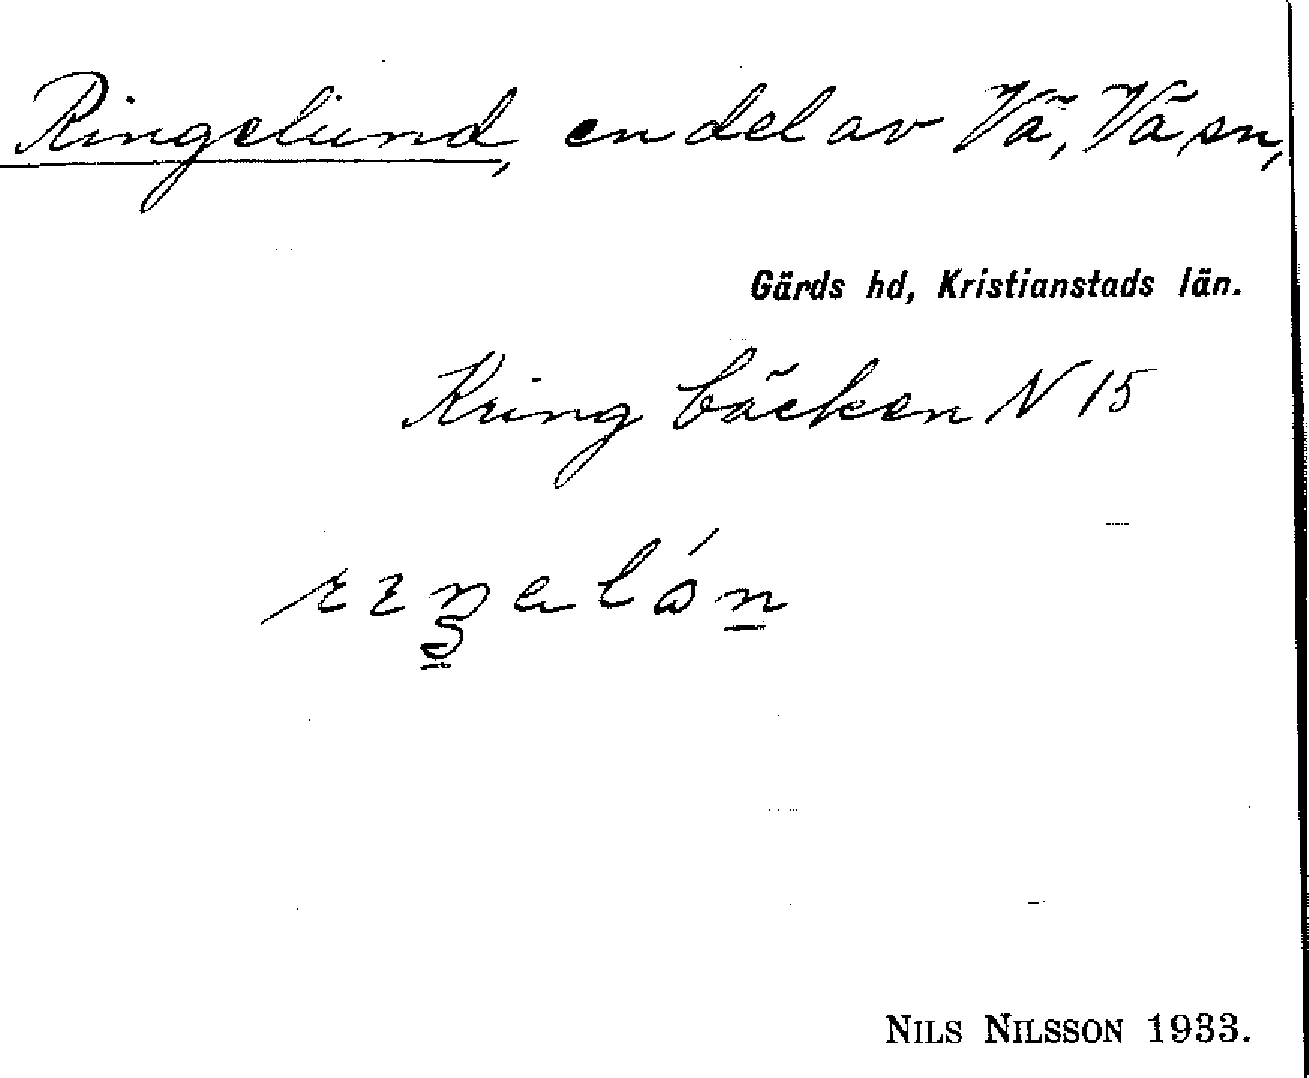 Ringelund, en del av Vä, Vä sn,
Gärds hd, Kristianstads län.
Kring bäcken N 15
NILS NILSSON 1933.